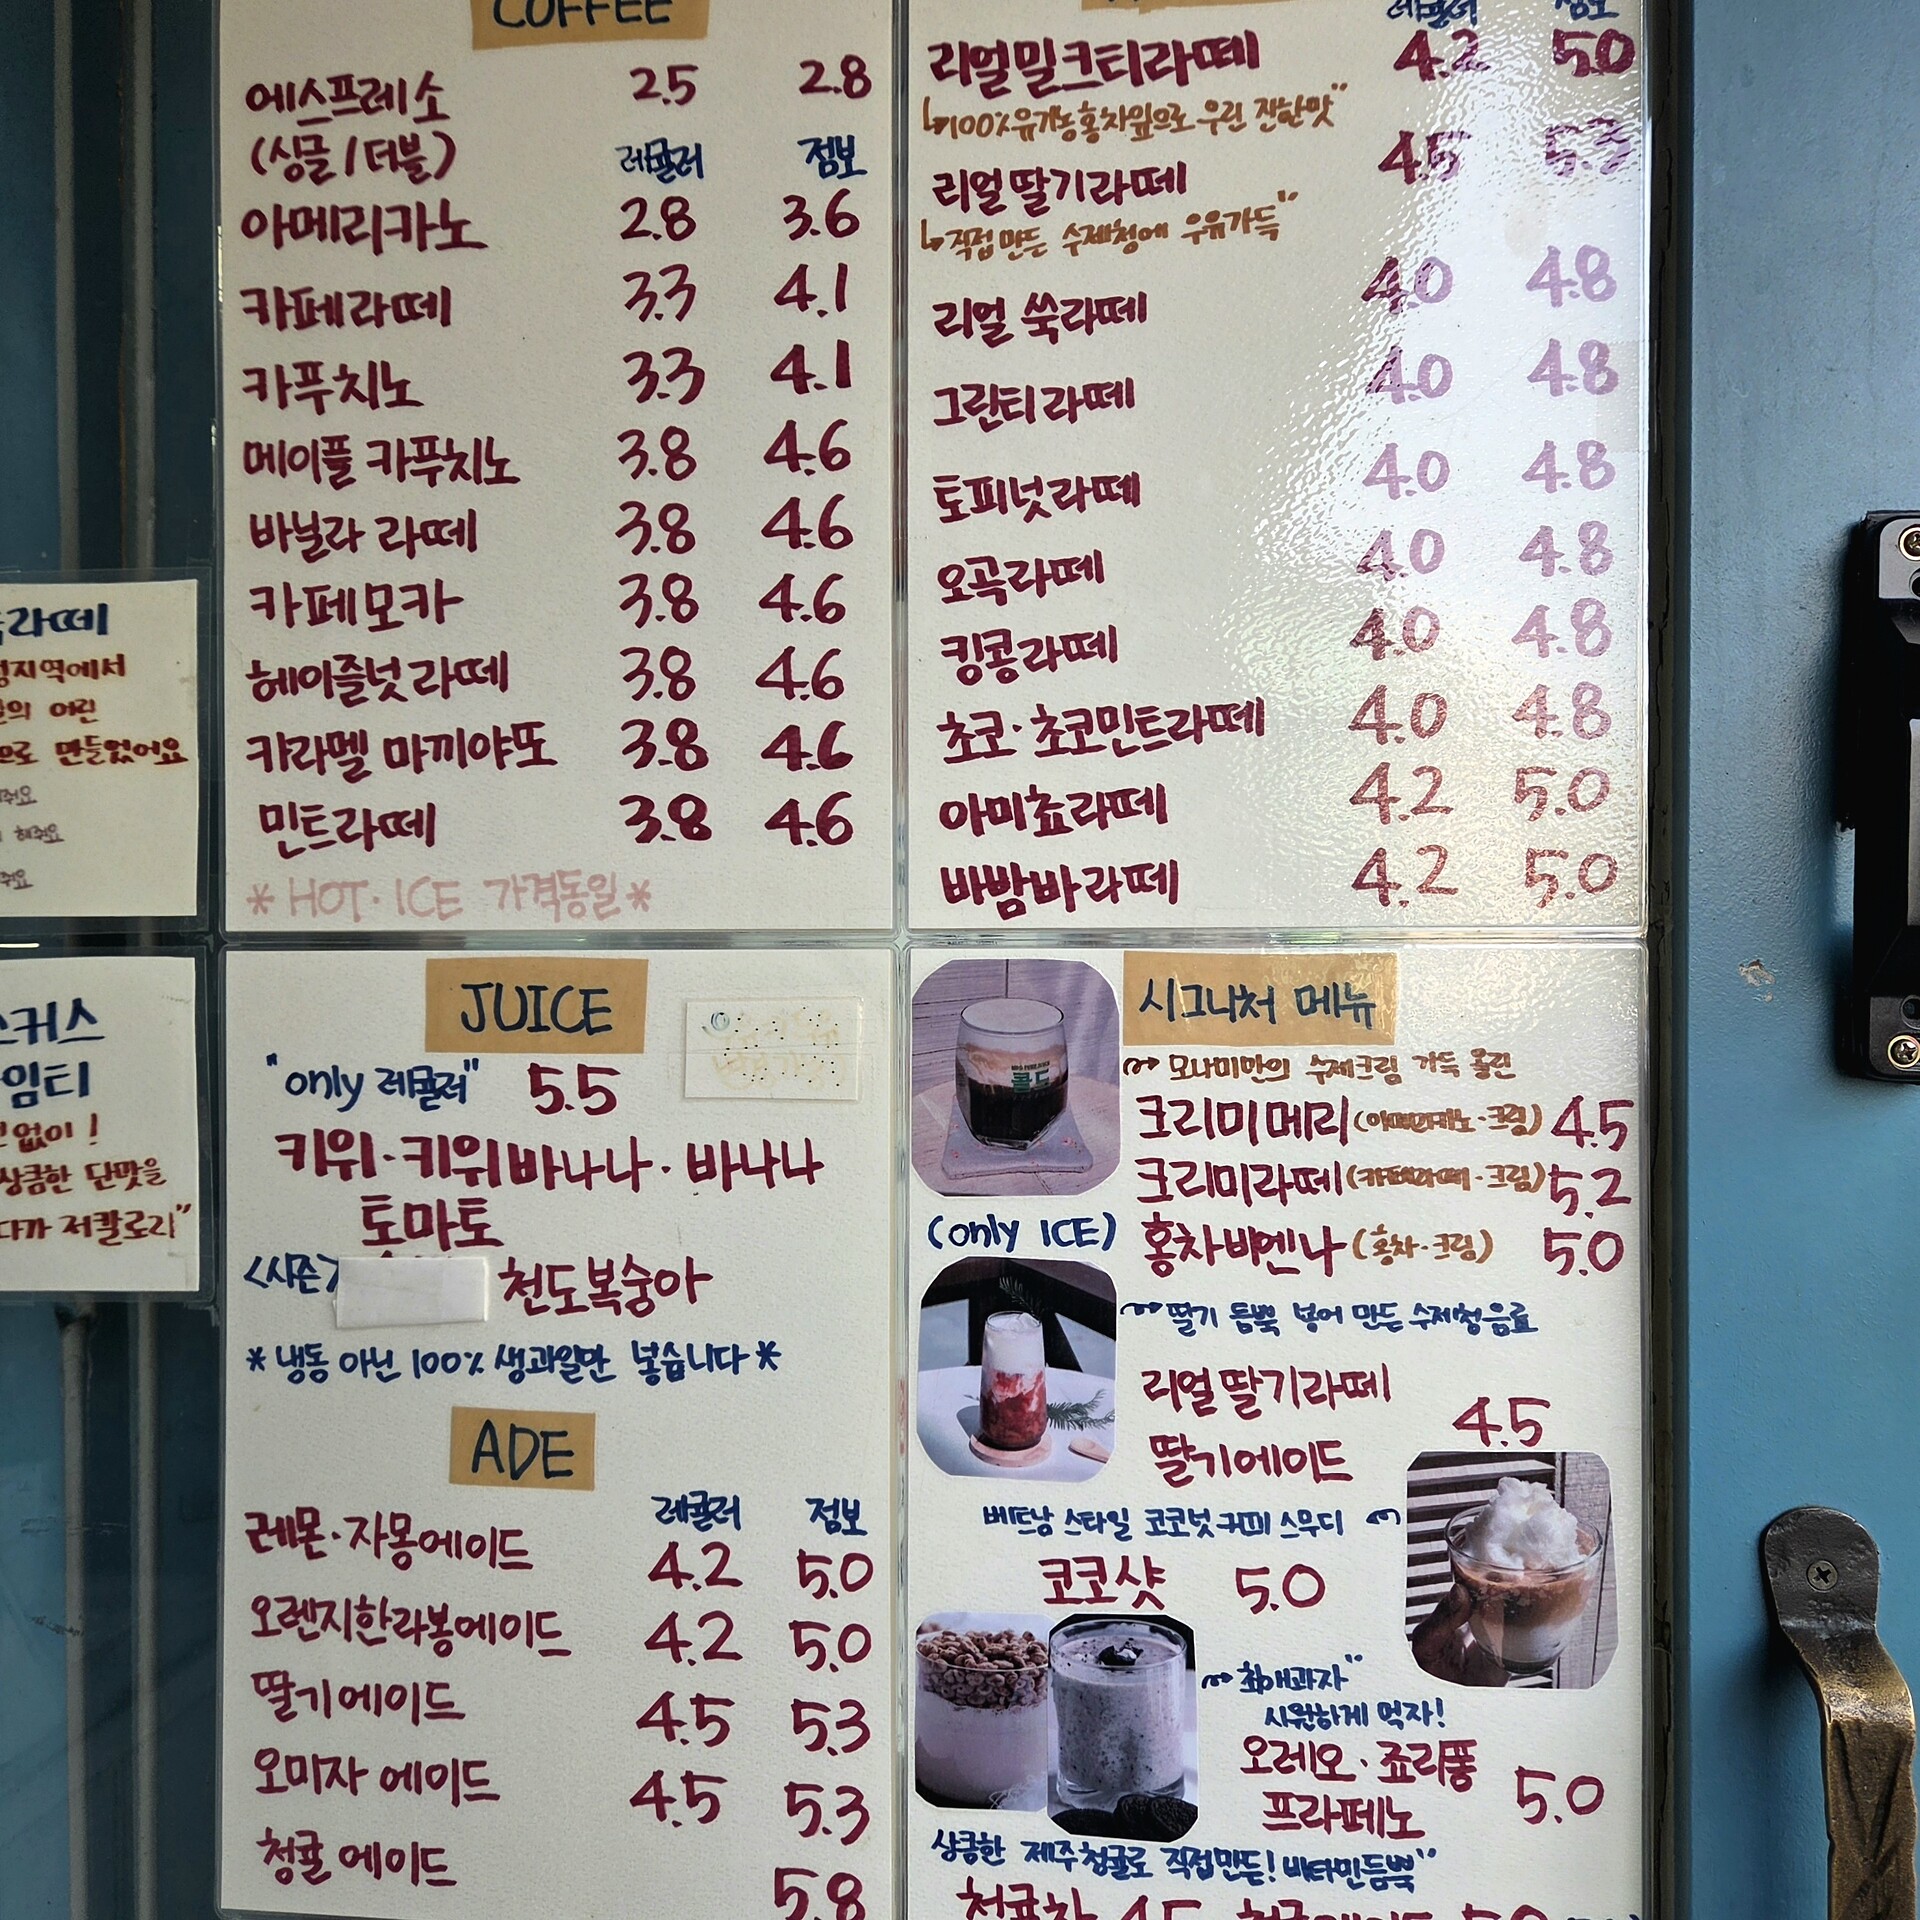 COFFEE
에스프레소 2.5 2.8
(싱글/더블) 레귤러 점보
아메리카노 2.8 3.6
카페라떼 3.3 4.1
카푸치노 3.3 4.1
메이플 카푸치노 3.8 4.6
바닐라 라떼 3.8 4.6
카페모카 3.8 4.6
헤이즐넛 라떼 3.8 4.6
캬라멜 마끼야또 3.8 4.6
민트라떼 3.8 4.6
* HOT · ICE 가격동일 *
레귤러 점보
리얼밀크티라떼 4.2 5.0
↳100%유기농홍차잎으로 우린 진한맛"
리얼딸기라떼 4.5 5.3
↳직접 만든 수제청에 우유가득"
리얼 쑥라떼 4.0 4.8
그린티라떼 4.0 4.8
토피넛라떼 4.0 4.8
오곡라떼 4.0 4.8
킹콩라떼 4.0 4.8
초코·초코민트라떼 4.0 4.8
아미쵸라떼 4.2 5.0
바밤바라떼 4.2 5.0
라떼
지역에서
의 어린
으로 만들었어요
해줘요
스커스
임티
없이!
상큼한 단맛을
다가 저칼로리"
JUICE
"only 레귤러" 5.5
키위·키위바나나·바나나
토마토
<시즌> 천도복숭아
* 냉동 아닌 100% 생과일만 넣습니다 *
ADE
레귤러 점보
레몬·자몽에이드 4.2 5.0
오렌지한라봉에이드 4.2 5.0
딸기에이드 4.5 5.3
오미자 에이드 4.5 5.3
청귤 에이드 5.8
시그니처 메뉴
모나미만의 수제크림 가득 올린
크리미메리(아메리카노·크림) 4.5
크리미라떼(카페라떼·크림) 5.2
홍차비엔나(홍차·크림) 5.0
(only ICE)
콜드
딸기 듬뿍 넣어 만든 수제청음료
리얼딸기라떼
4.5
딸기에이드
베트남 스타일 코코넛커피 스무디
코코샷 5.0
최애과자"
시원하게 먹자!
오레오·죠리퐁
프라페노 5.0
상큼한 제주청귤로 직접만든! 비타민듬뿍"
청귤차 4.5